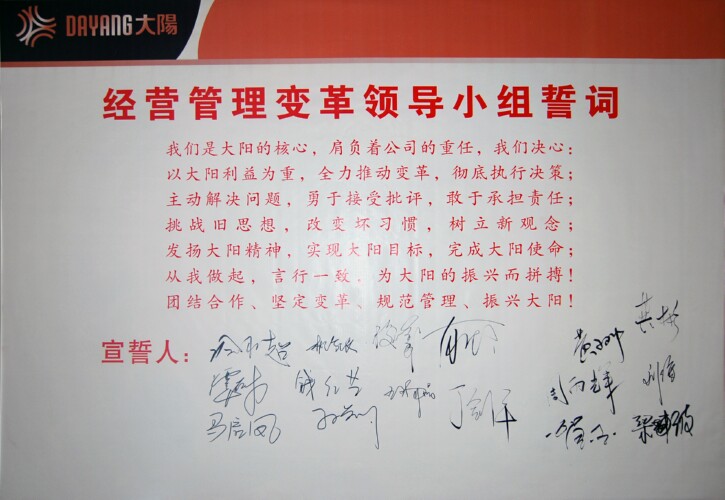 DAYANG大陽
经营管理变革领导小组誓词
我们是大阳的核心，肩负着公司的重任，我们决心：
以大阳利益为重，全力推动变革，彻底执行决策；
主动解决问题，勇于接受批评，敢于承担责任；
挑战旧思想，改变坏习惯，树立新观念；
发扬大阳精神，实现大阳目标，完成大阳使命；
从我做起，言行一致，为大阳的振兴而拼搏！
团结合作、坚定变革、规范管理、振兴大阳！
宣誓人：
钱红芳
马启凤